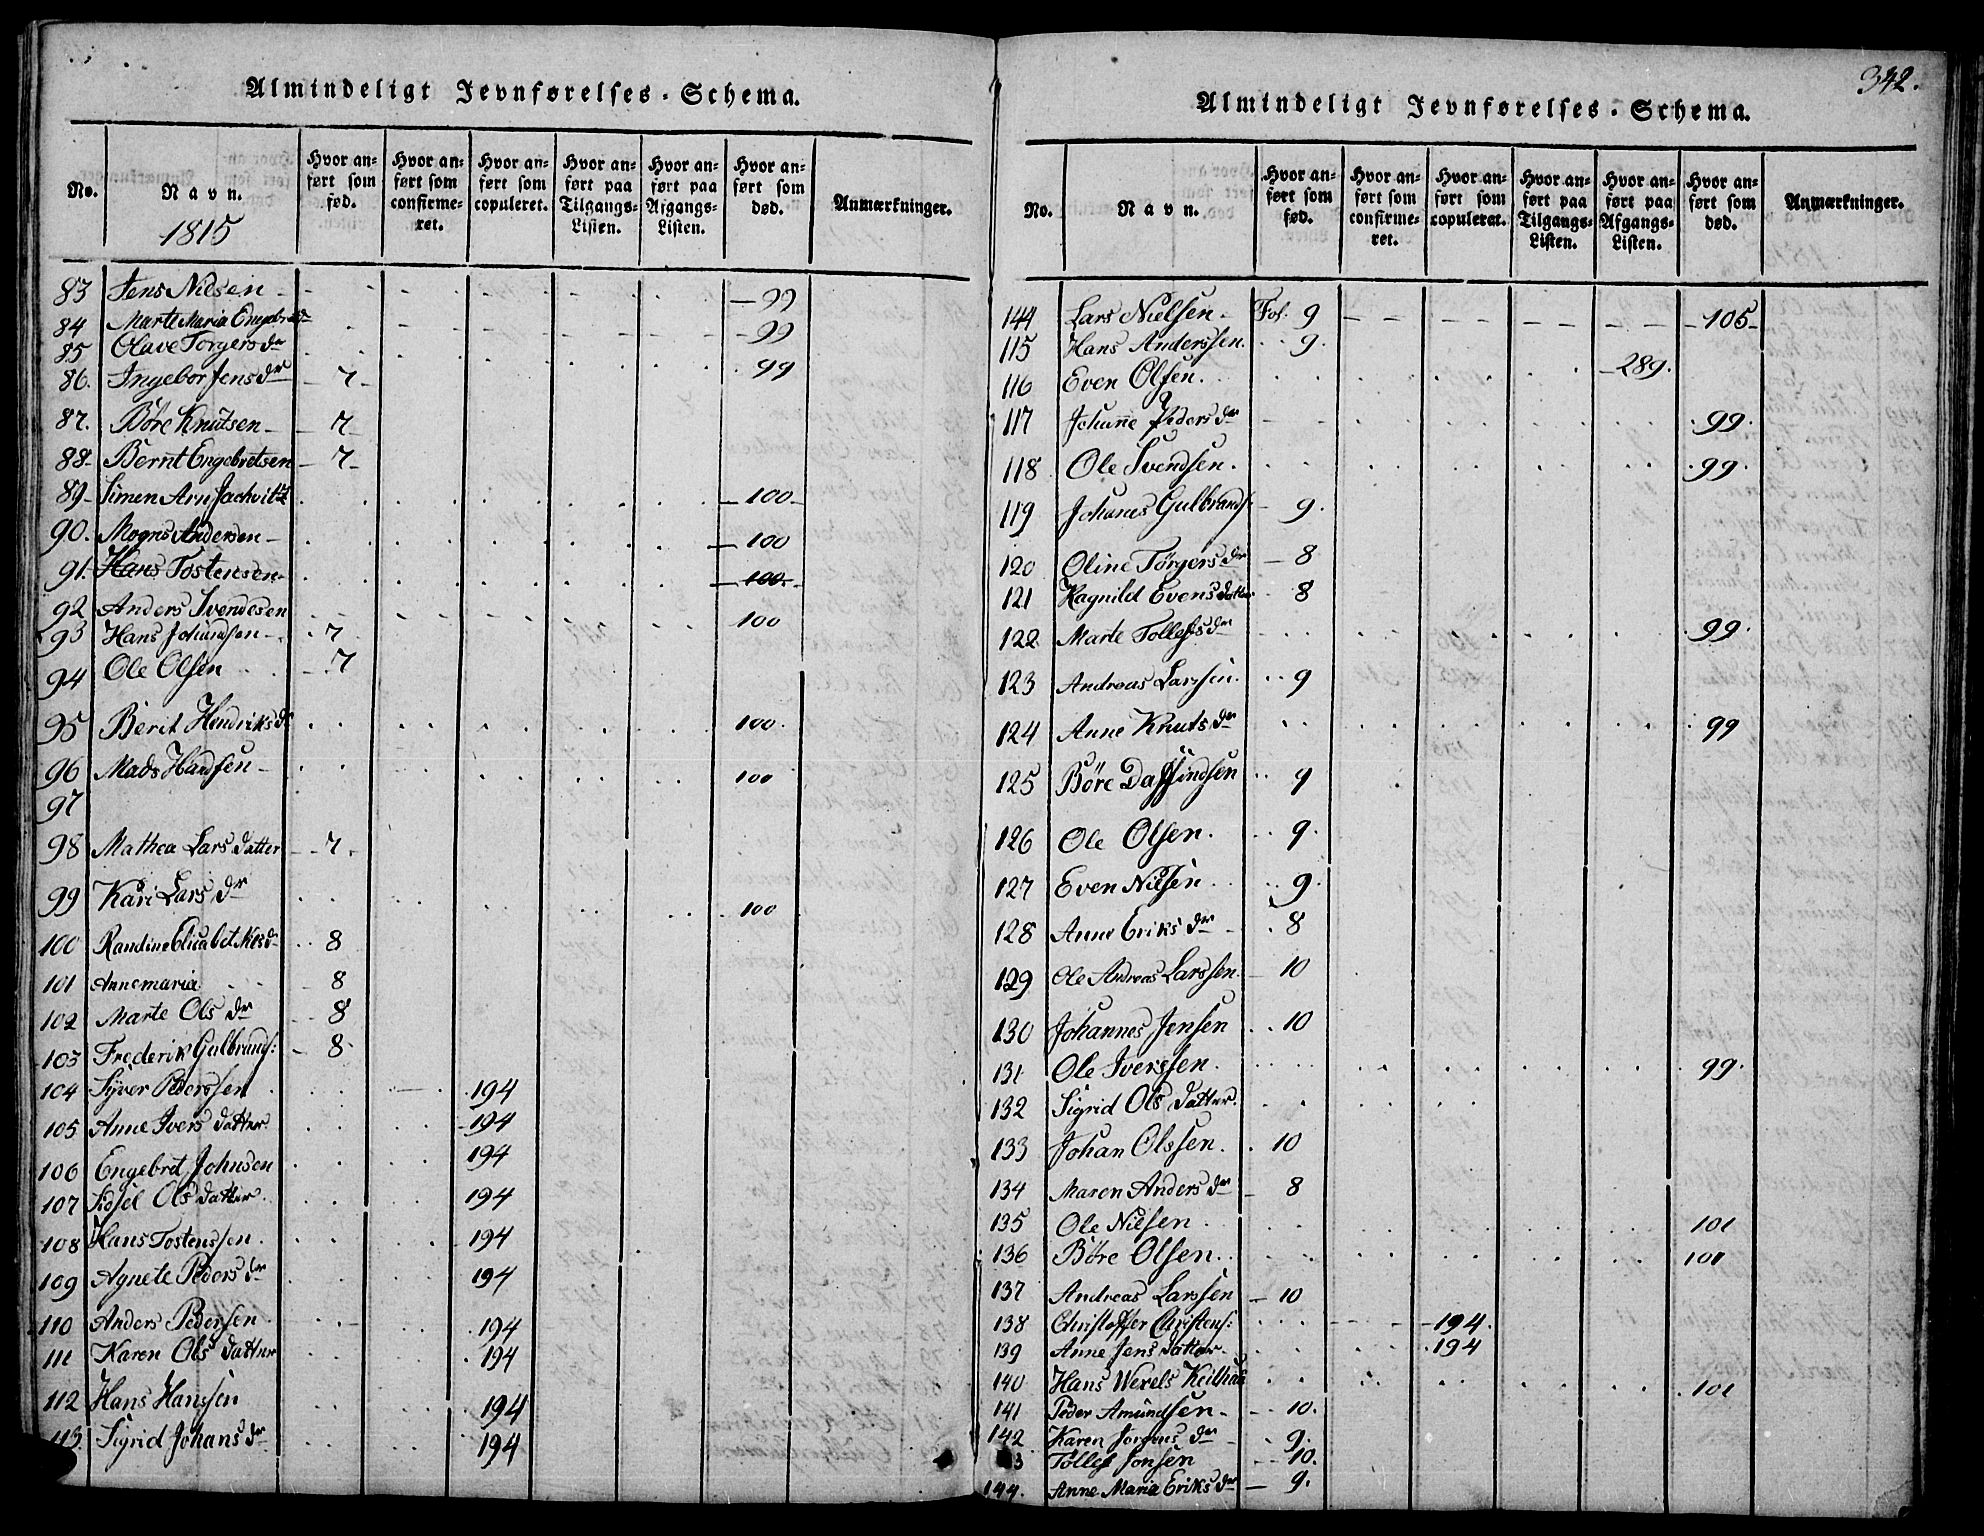 Almindeligt Jevnførelses-Schema.
No. Navn. Hvor anført som fød. Hvor anført som confirmeret. Hvor anført som copuleret. Hvor anført paa Tilgangs-Listen. Hvor anført paa Afgangs-Listen. Hvor anført som død. Anmærkninger.
1815
83 Jens Nilsen 99
84 Marte Maria 99
85 Olave Torgersdr 99
86. Ingebor Jensdr 7
87. Böre Knutsen 7
88 Bernt Engebretsen 7
89 Simen 100
90. Mogns Andersen 100
91. Hans Tostensen 100
92 Anders Svendsen 100
93 Hans Johansen 7
94 Ole Olsen 7
95 Berit Hendriksdr 100.
96 Mads Hansen 100
97
98 Mathea Lars datter 7.
99 Kari Lars dr 100
100 Randine 8
101 Annemaria 8
102 Marte Ols dr 8
103 Frederik Gulbrands: 8
104 Syver Pederssen 194
105 Anne Ivers datter. 194
106 Engebret Johnsen 194
107 Sidsel Ols datter. 194
108 Hans Tostenssen. 194
109 Agnete Peders dr 194
110 Anders Pedersen 194
111 Karen Ols datter 194
112 Hans Hanssen 194
113. Sigrid Johans dr 194
342.
Almindeligt Jevnførelses-Schema.
No. Navn. Hvor anført som fød. Hvor anført som confirmeret. Hvor anført som copuleret. Hvor anført paa Tilgangs-Listen. Hvor anført paa Afgangs-Listen. Hvor anført som død. Anmærkninger.
144 Lars Nielsen Fol. 9 105
115 Hans Anderssen. 9.
116 Even Olsen. 289.
117 Johanne Pedersdr 99.
118 Ole Svendsen. 99.
119 Johanes Gulbrands: 9.
120 Oline Törgersdr 8
121 Ragnild Evensdatter 8
122 Marte Tollefsdr 99.
123 Andreas Larssen. 9
124 Anne Knutsdr 99
125 Böre 9
126 Ole Olsen. 9.
127 Even Nilsen 9.
128 Anne Eriks dr 8
129 Ole Andreas Larssen. 10
130 Johannes Jensen 10
131 Ole Iverssen. 99.
132 Sigrid Ols datter.
133 Johan Olssen. 10
134 Maren Anders dr 8
135 Ole Nilsen 101
136 Böre Olsen. 101
137 Andreas Larssen 10
138 Christoffer Christens: 194.
139 Anne Jens datter. 194
140 Hans Wexels Keilhau 101
141 Peder Amundsen 10.
142 Karen Jorgens dr 9.
3 Tollef Jonsen 10.
144. Anne Maria Eriks dr 9.